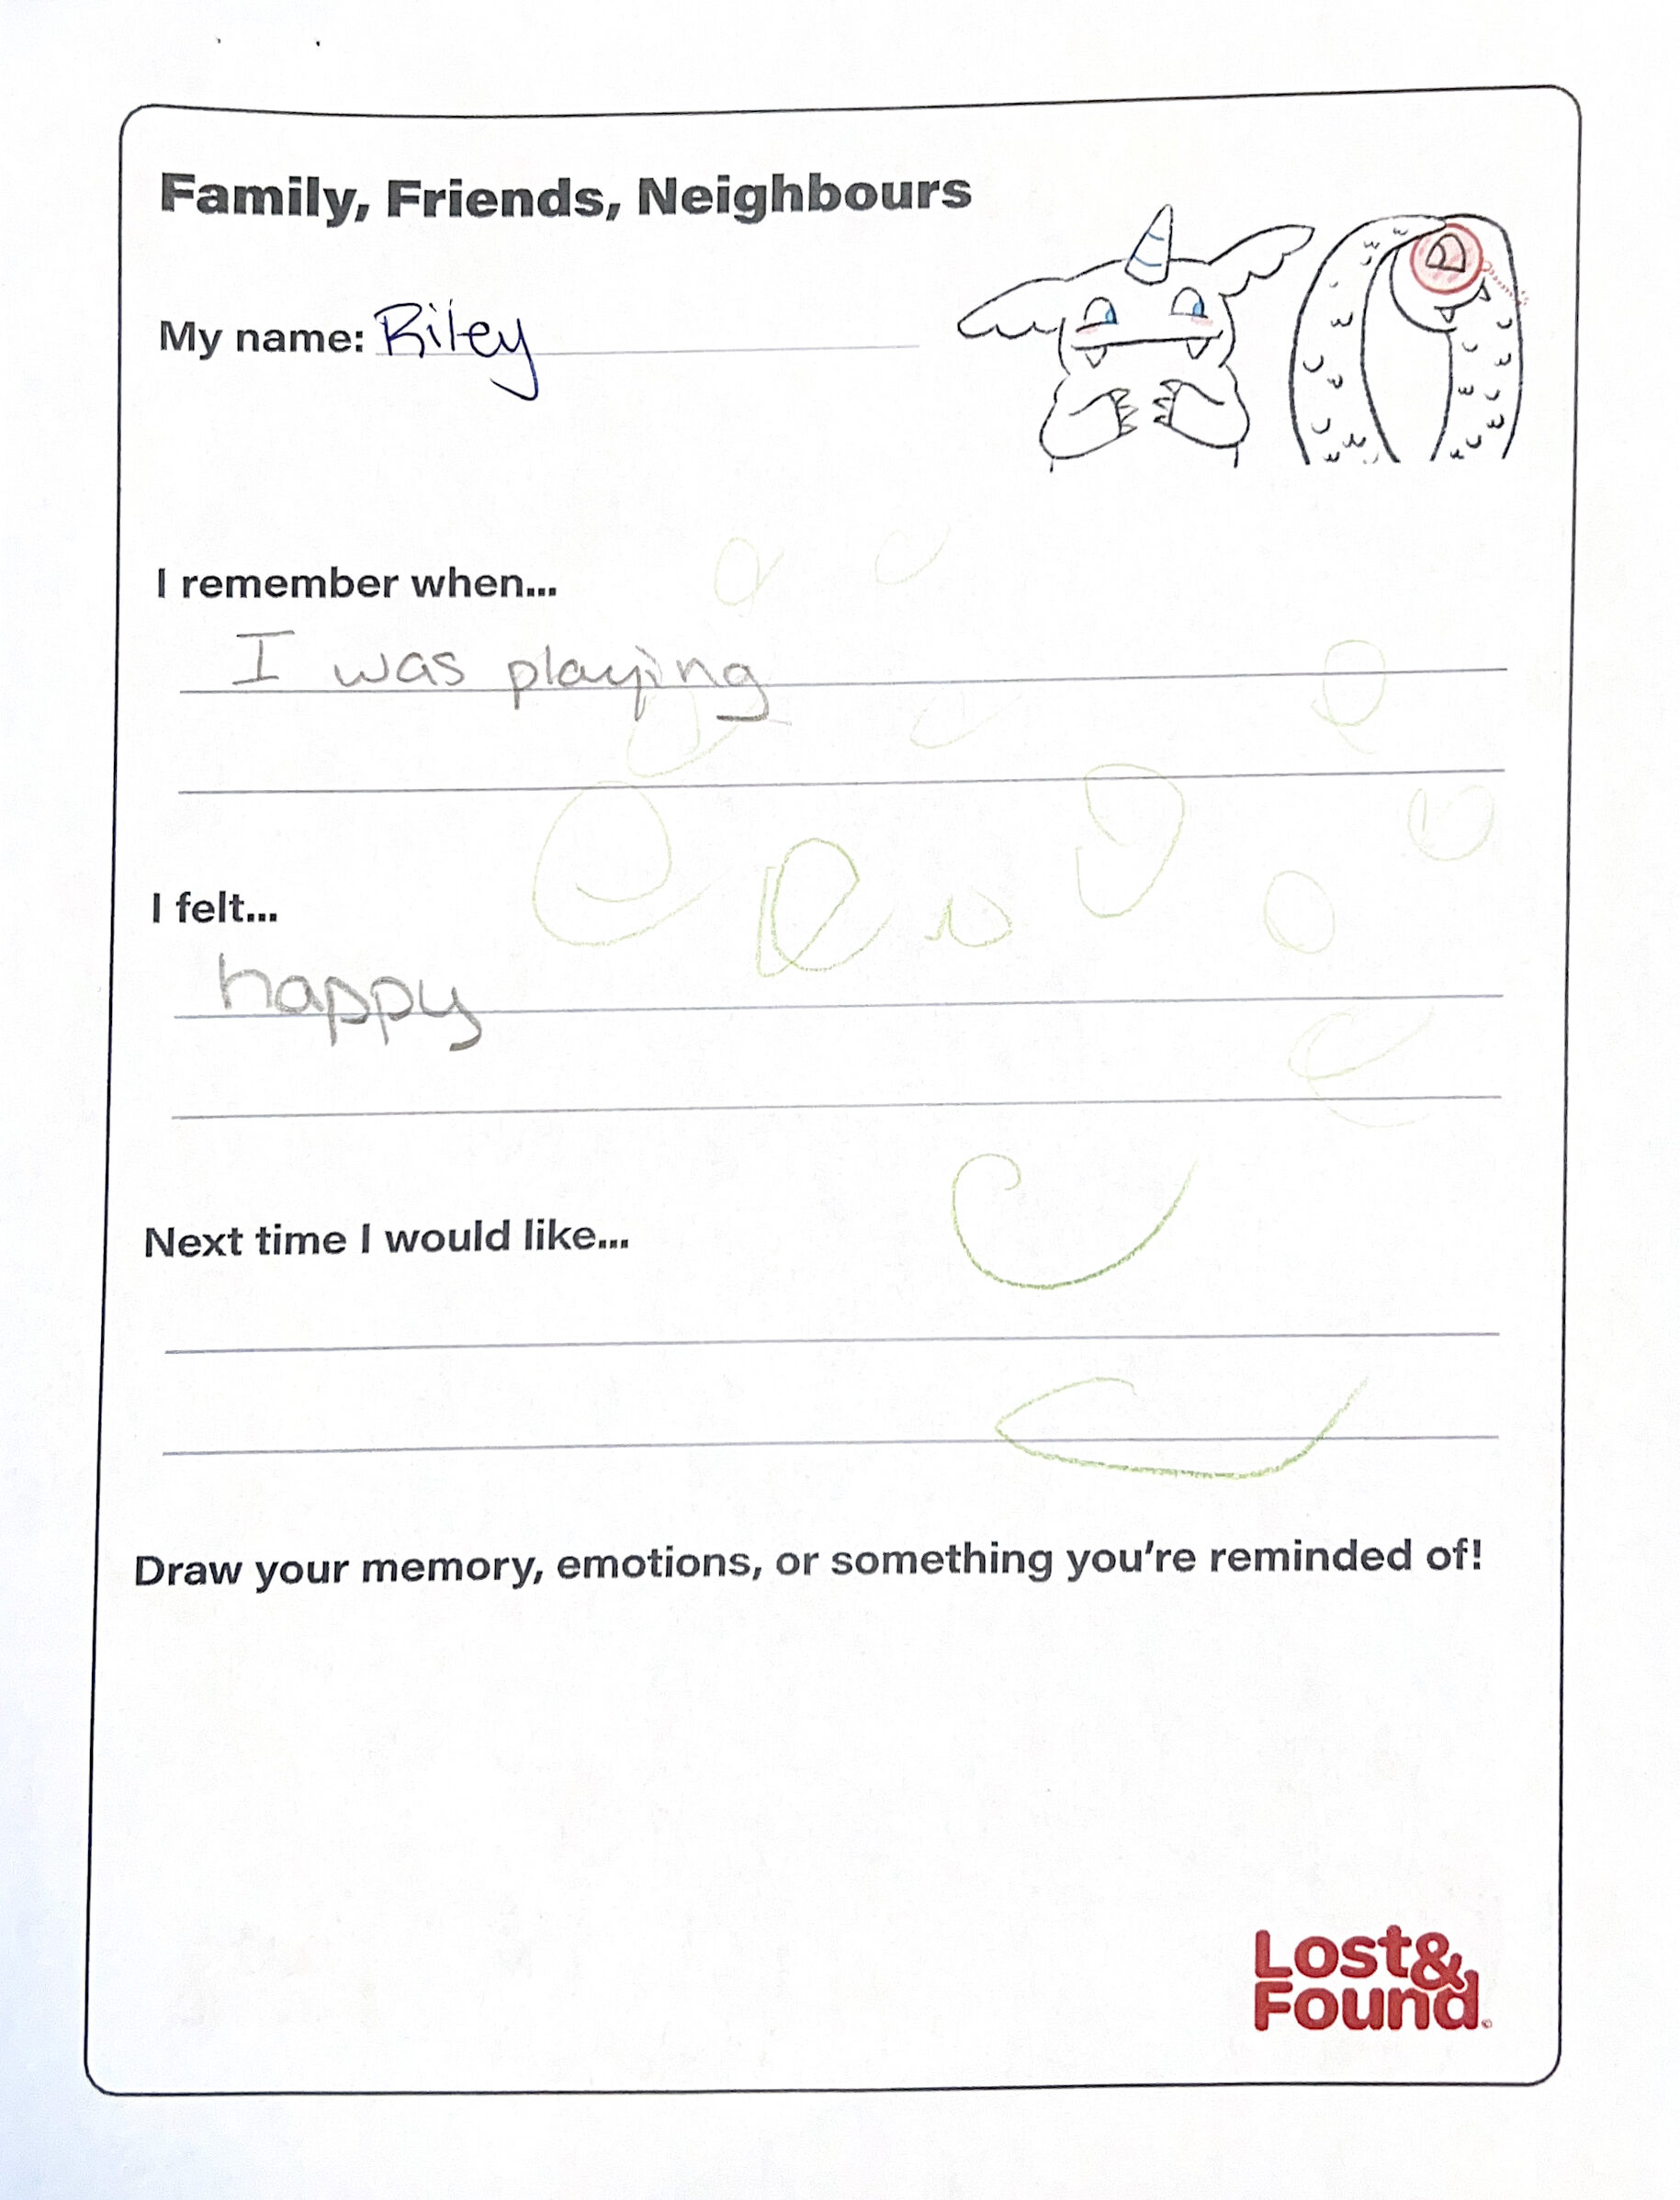 Family, Friends, Neighbours
My name: Riley
I remember when...
I was playing
I felt...
happy
Next time I would like...
Draw your memory, emotions, or something you're reminded of!
Lost&
Found